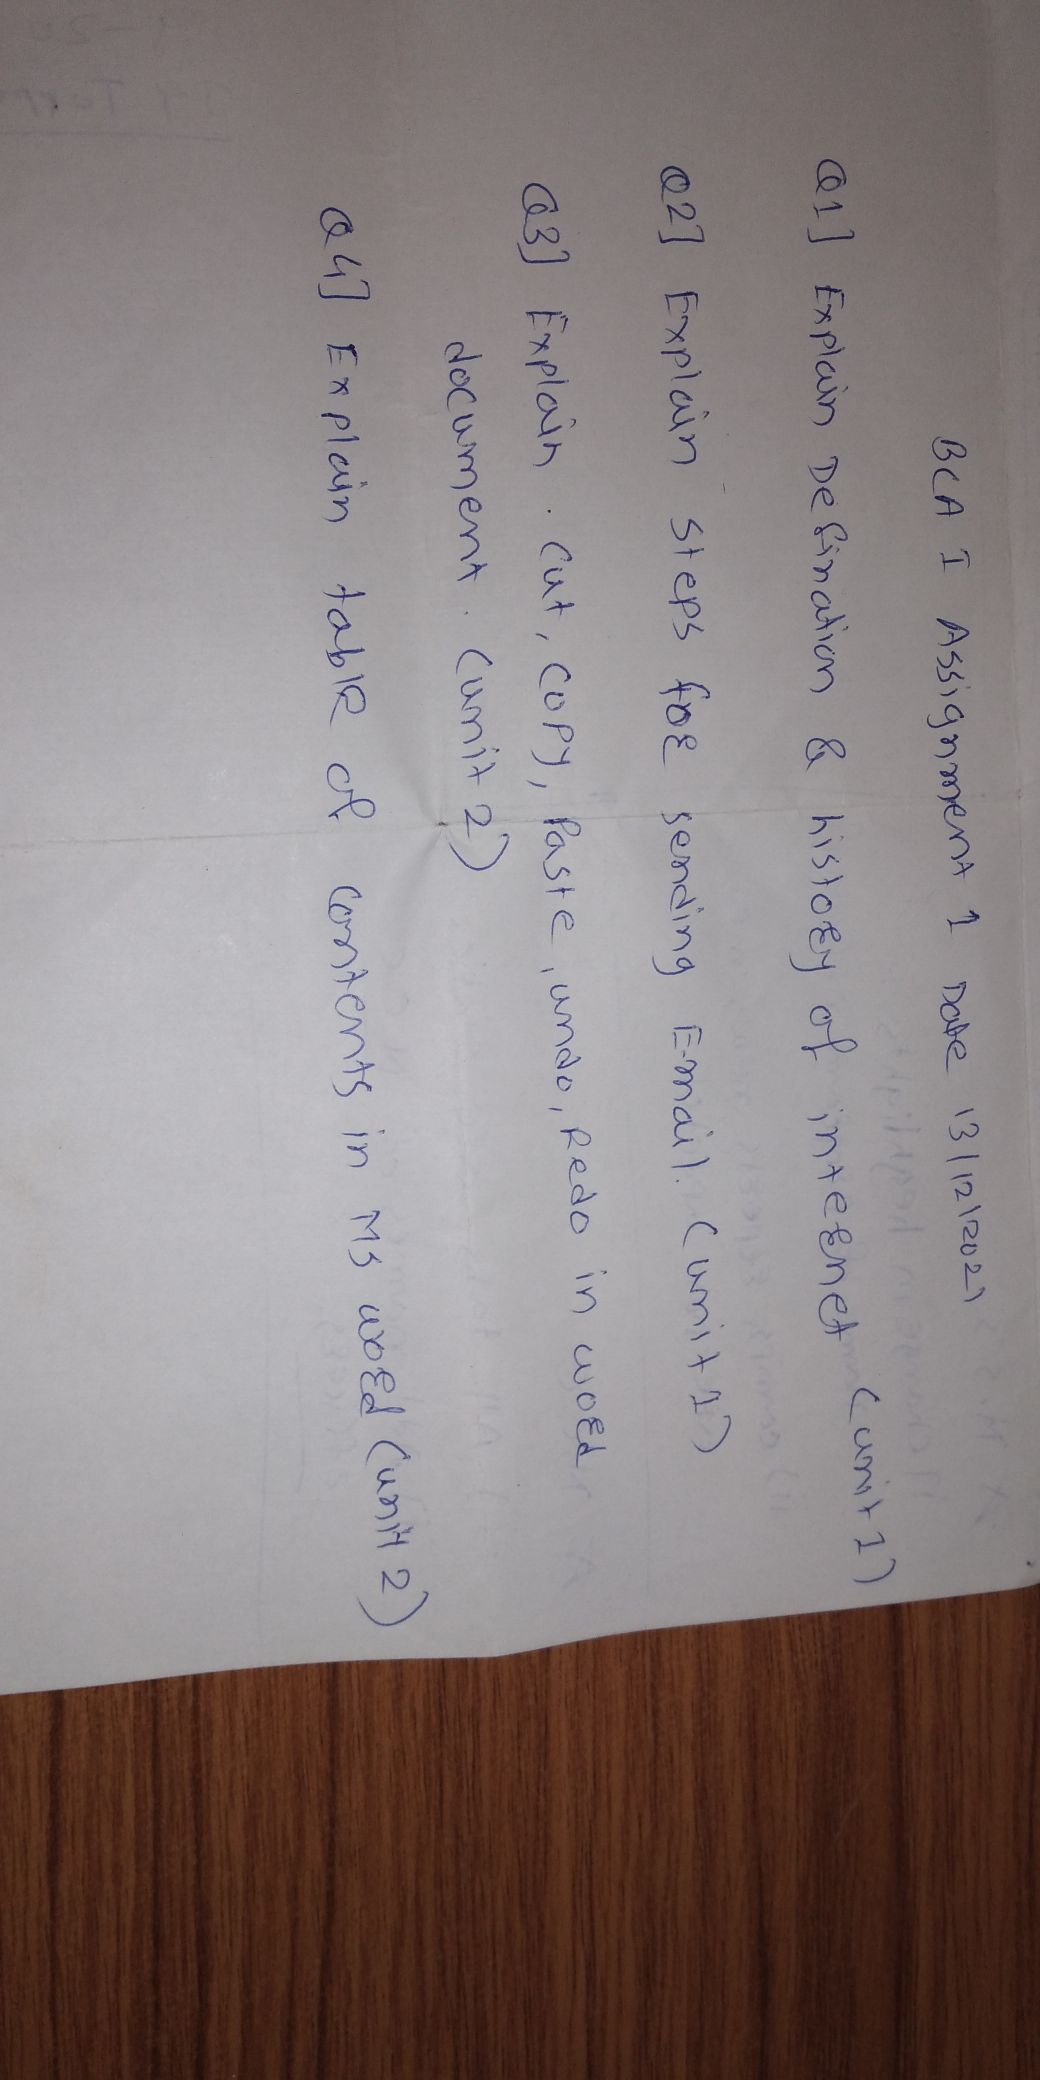 BCA I Assignment 1 Date 13/12/2021
Q1] Explain Defination & history of internet (unit 1)
Q2] Explain steps for sending E-mail. (unit 1)
Q3] Explain . Cut, Copy, Paste, undo, Redo in word
document. (unit 2)
Q4] Explain table of Contents in MS word (unit 2)